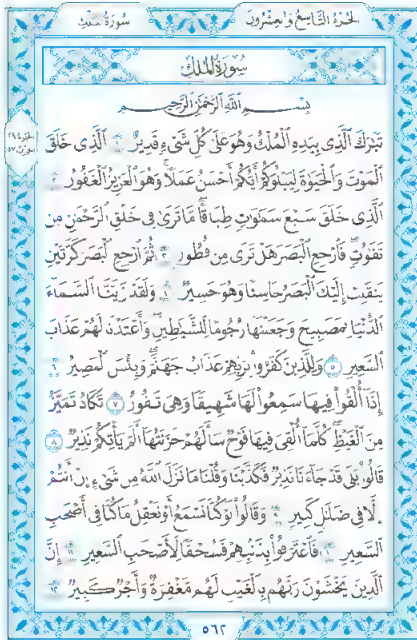 سُورَةُ مُلْك
الجُزءُ التَّاسِعُ وَالعِشْرُونَ
سُورَةُ المُلْكِ
بِسْمِ اللَّهِ الرَّحْمٰنِ الرَّحِيمِ
تَبٰرَكَ الَّذِى بِيَدِهِ الْمُلْكُ وَهُوَ عَلٰى كُلِّ شَىْءٍ قَدِيرٌ ﴿١﴾ الَّذِى خَلَقَ
الْمَوْتَ وَالْحَيٰوةَ لِيَبْلُوَكُمْ أَيُّكُمْ أَحْسَنُ عَمَلًا وَهُوَ الْعَزِيزُ الْغَفُورُ ﴿٢﴾
الَّذِى خَلَقَ سَبْعَ سَمٰوٰتٍ طِبَاقًا مَا تَرٰى فِى خَلْقِ الرَّحْمٰنِ مِن
تَفٰوُتٍ فَارْجِعِ الْبَصَرَ هَلْ تَرٰى مِن فُطُورٍ ﴿٣﴾ ثُمَّ ارْجِعِ الْبَصَرَ كَرَّتَيْنِ
يَنقَلِبْ إِلَيْكَ الْبَصَرُ خَاسِئًا وَهُوَ حَسِيرٌ ﴿٤﴾ وَلَقَدْ زَيَّنَّا السَّمَاءَ
الدُّنْيَا بِمَصٰبِيحَ وَجَعَلْنٰهَا رُجُومًا لِلشَّيٰطِينِ وَأَعْتَدْنَا لَهُمْ عَذَابَ
السَّعِيرِ ﴿٥﴾ وَلِلَّذِينَ كَفَرُوا بِرَبِّهِمْ عَذَابُ جَهَنَّمَ وَبِئْسَ الْمَصِيرُ ﴿٦﴾
إِذَا أُلْقُوا فِيهَا سَمِعُوا لَهَا شَهِيقًا وَهِىَ تَفُورُ ﴿٧﴾ تَكَادُ تَمَيَّزُ
مِنَ الْغَيْظِ كُلَّمَا أُلْقِىَ فِيهَا فَوْجٌ سَأَلَهُمْ خَزَنَتُهَا أَلَمْ يَأْتِكُمْ نَذِيرٌ ﴿٨﴾
قَالُوا بَلٰى قَدْ جَاءَنَا نَذِيرٌ فَكَذَّبْنَا وَقُلْنَا مَا نَزَّلَ اللَّهُ مِن شَىْءٍ إِنْ أَنتُمْ
إِلَّا فِى ضَلٰلٍ كَبِيرٍ ﴿٩﴾ وَقَالُوا لَوْ كُنَّا نَسْمَعُ أَوْ نَعْقِلُ مَا كُنَّا فِى أَصْحٰبِ
السَّعِيرِ ﴿١٠﴾ فَاعْتَرَفُوا بِذَنبِهِمْ فَسُحْقًا لِأَصْحٰبِ السَّعِيرِ ﴿١١﴾ إِنَّ
الَّذِينَ يَخْشَوْنَ رَبَّهُم بِالْغَيْبِ لَهُم مَغْفِرَةٌ وَأَجْرٌ كَبِيرٌ ﴿١٢﴾
٥٦٢